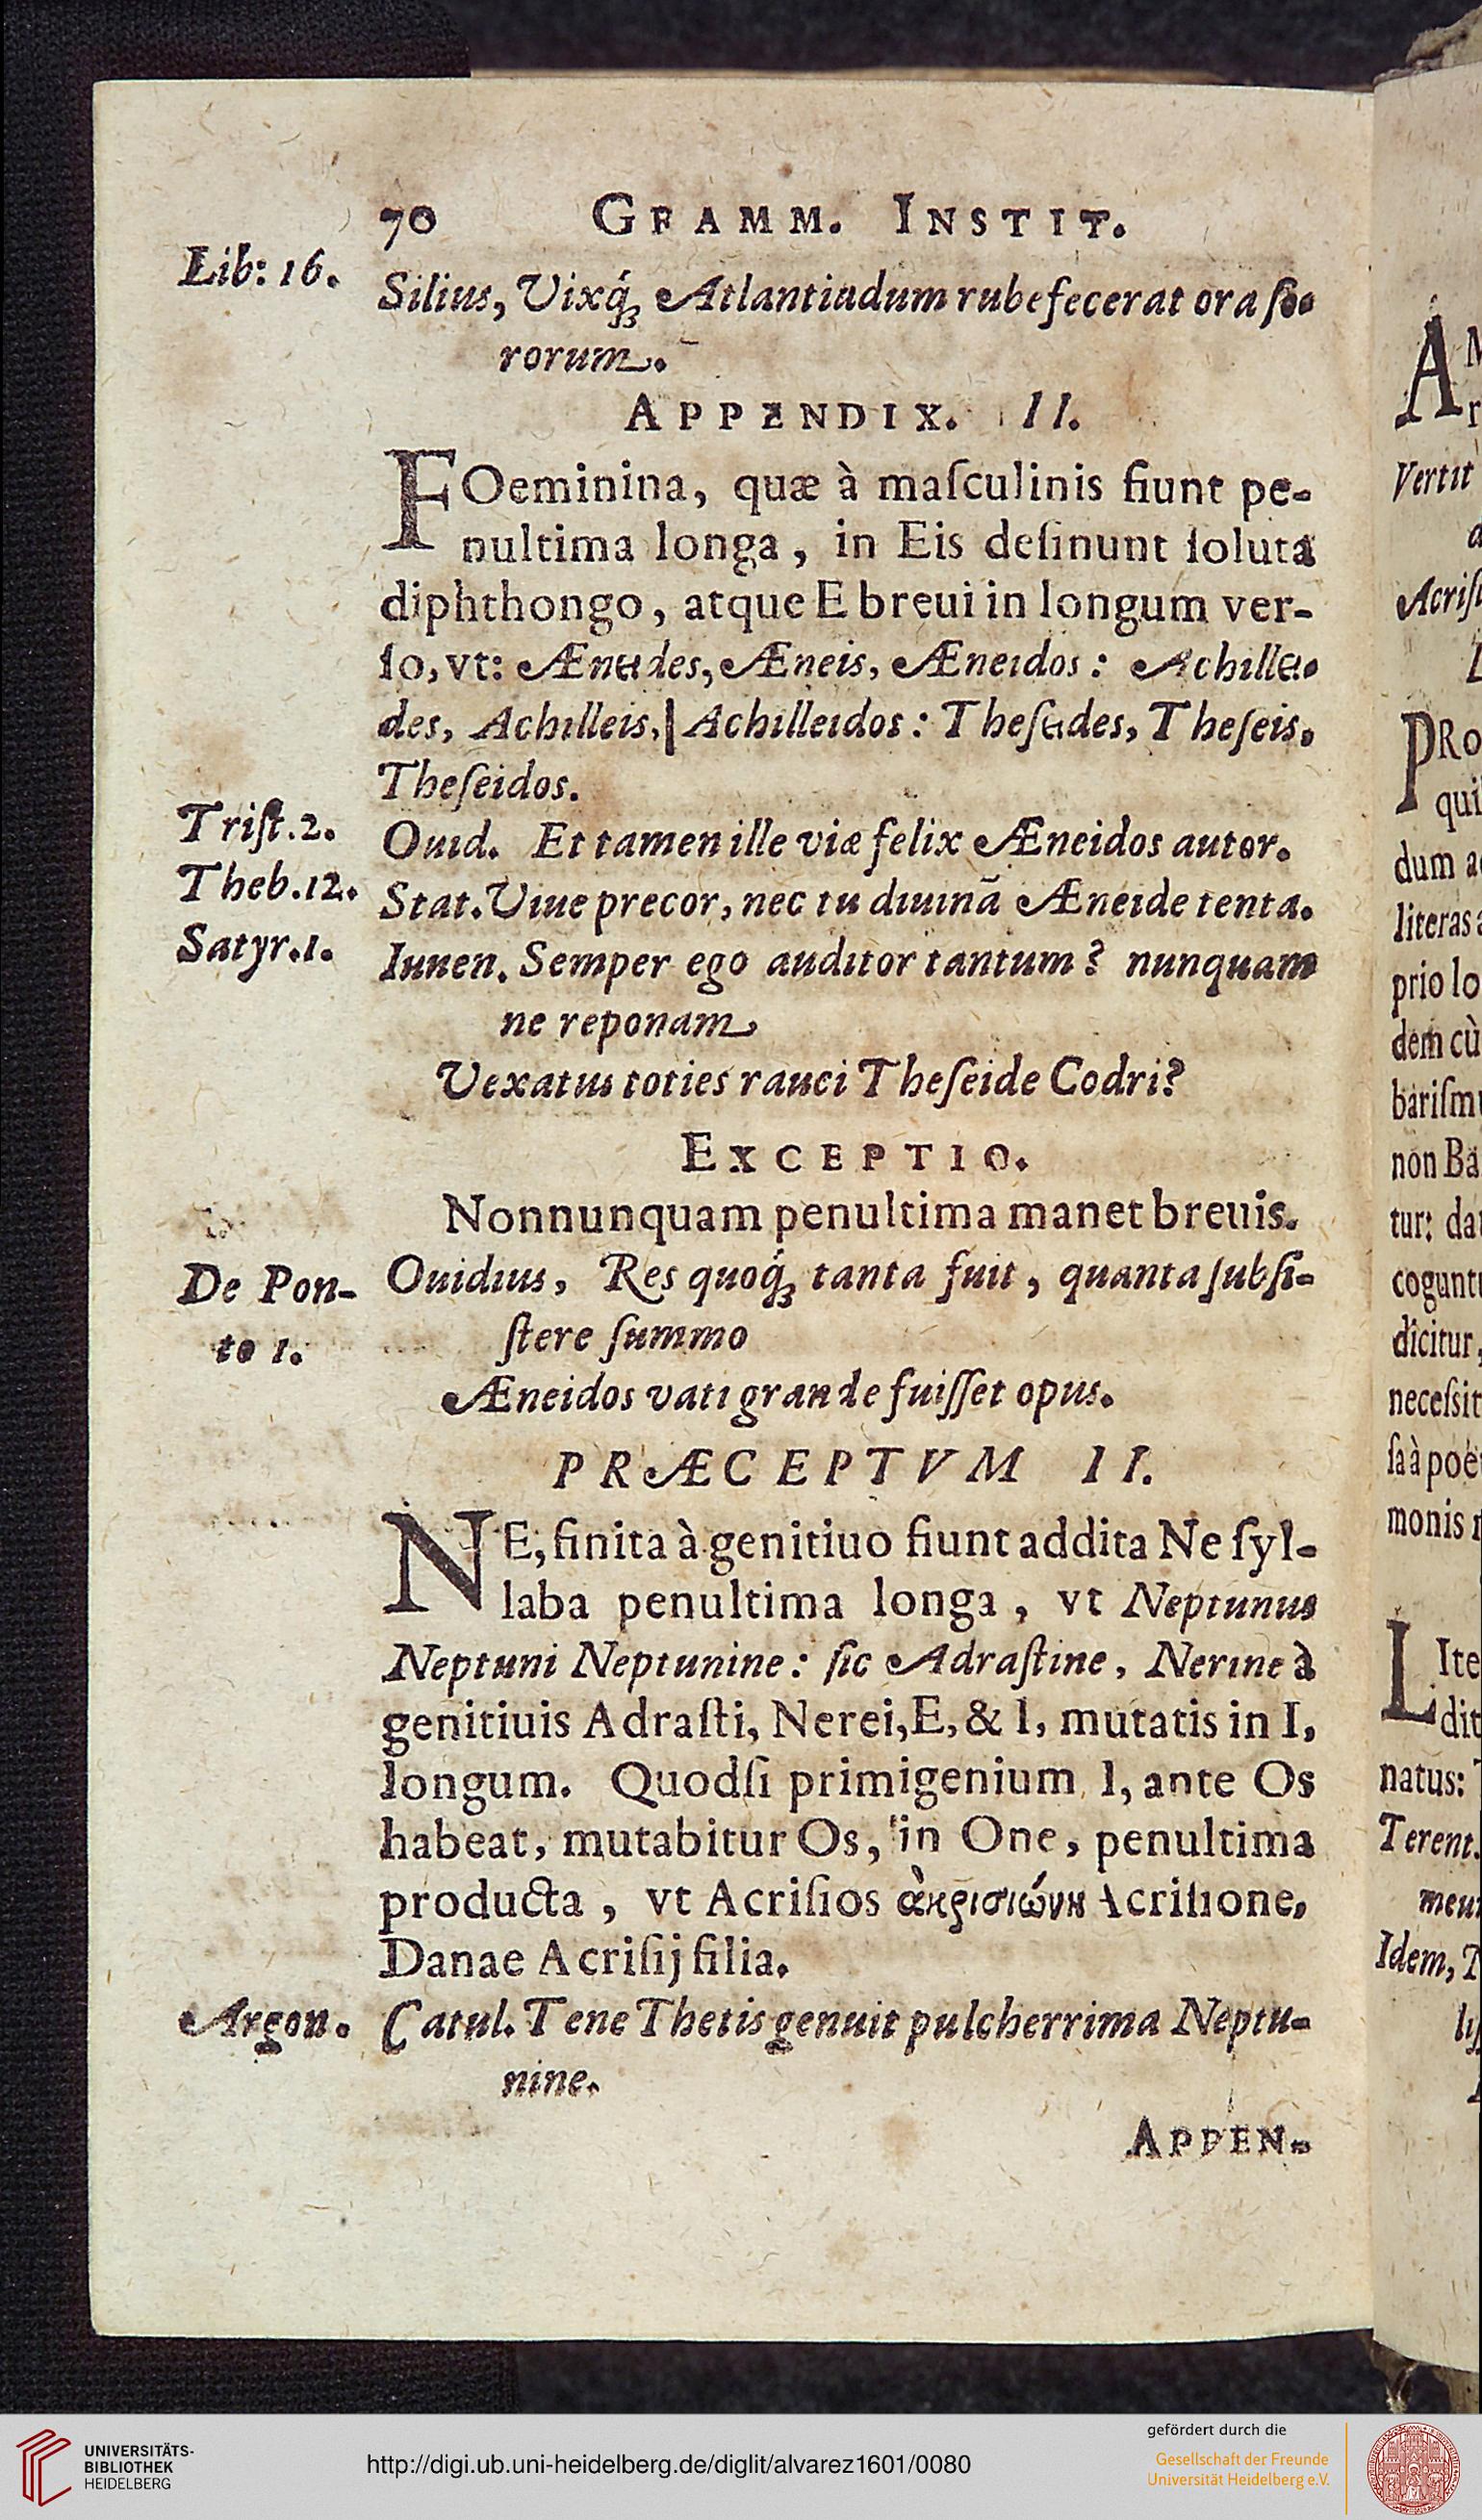 70 GRAMM. INSTIT.
Lib: 16.
Silius, Vixq́ꝫ Atlantiadum rubefecerat ora ſo-
rorum.
APPENDIX. II.
FOeminina, quæ à maſculinis fiunt pe-
nultima longa, in Eis deſinunt ſoluta
diphthongo, atque E breui in longum ver-
ſo, vt: Æneides, Æneis, Æneidos: Achillei-
des, Achilleis, Achilleidos: Theſeides, Theſeis,
Theſeidos.
Triſt. 2.
Ouid. Et tamen ille viæ felix Æneidos autor.
Theb. 12.
Stat. Viue precor, nec tu diuinã Æneide tenta.
Satyr. 1.
Iuuen. Semper ego auditor tantum? nunquam
ne reponam
Vexatus toties rauci Theſeide Codri?
EXCEPTIO.
Nonnunquam penultima manet breuis.
De Pon-
to 1.
Ouidius, Res quoq́ꝫ tanta fuit, quanta ſubſi-
ſtere ſummo
Æneidos vati grande fuiſſet opus.
PRÆCEPTVM II.
NE, finita à genitiuo fiunt addita Ne ſyl-
laba penultima longa, vt Neptunus
Neptuni Neptunine: ſic Adraſtine, Nerine à
genitiuis Adraſti, Nerei, E, & I, mutatis in I,
longum. Quodſi primigenium I, ante Os
habeat, mutabitur Os, in One, penultima
producta, vt Acriſios ἀκρισιώνη Acriſione,
Danae Acriſij filia.
Argon.
Catul. Tene Thetis genuit pulcherrima Neptu-
nine.
APPEN-
Vertit
PRo
qui
dum
literas
prio lo
dem cù
bariſm
non Ba
tur: da
cogunt
dicitur,
neceſsit
ſa à poë
monis
LIte
dit
natus:
Terent.
meu
Idem,
UNIVERSITÄTS-
BIBLIOTHEK
HEIDELBERG
http://digi.ub.uni-heidelberg.de/diglit/alvarez1601/0080
gefördert durch die
Gesellschaft der Freunde
Universität Heidelberg e.V.